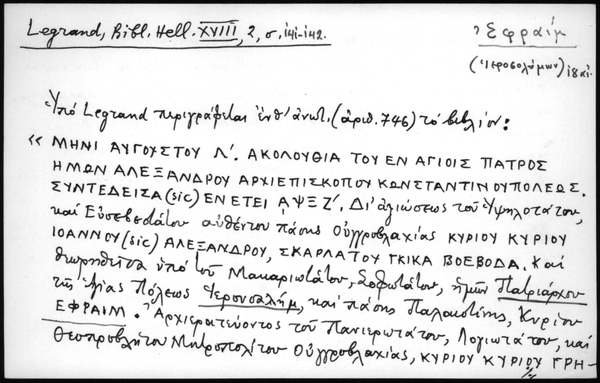 Legrand, Bibl. Hell. XVIII, 2, σ. 141-142.
Ἐφραὶμ
(Ἱεροσολύμων) 18 αἰ.
Ὑπὸ Legrand περιγράφεται ἔνθ' ἀνωτ. (ἀριθ. 746) τὸ βιβλίον:
« ΜΗΝΙ ΑΥΓΟΥΣΤΟΥ Λ΄. ΑΚΟΛΟΥΘΙΑ ΤΟΥ ΕΝ ΑΓΙΟΙΣ ΠΑΤΡΟΣ
ΗΜΩΝ ΑΛΕΞΑΝΔΡΟΥ ΑΡΧΙΕΠΙΣΚΟΠΟΥ ΚΩΝΣΤΑΝΤΙΝΟΥΠΟΛΕΩΣ.
ΣΥΝΤΕΔΕΙΣΑ (sic) ΕΝ ΕΤΕΙ ΑΨΞΖ΄. Δι' ἀξιώσεως τοῦ Ὑψηλοτάτου,
καὶ Εὐσεβεστάτου αὐθέντου πάσης Οὐγγροβλαχίας ΚΥΡΙΟΥ ΚΥΡΙΟΥ
ΙΟΑΝΝΟΥ (sic) ΑΛΕΞΑΝΔΡΟΥ, ΣΚΑΡΛΑΤΟΥ ΓΚΙΚΑ ΒΟΕΒΟΔΑ. Καὶ
θεωρηθεῖσα ὑπὸ τοῦ Μακαριωτάτου, Σοφωτάτου, ἡμῶν Πατριάρχου
τῆς Ἁγίας Πόλεως Ἱερουσαλὴμ, καὶ πάσης Παλαιστίνης, Κυρίου
ΕΦΡΑΙΜ. Ἀρχιερατεύοντος τοῦ Πανιερωτάτου, Λογιωτάτου, καὶ
Θεοπροβλήτου Μητροπολίτου Οὐγγροβλαχίας, ΚΥΡΙΟΥ ΚΥΡΙΟΥ ΓΡΗ-